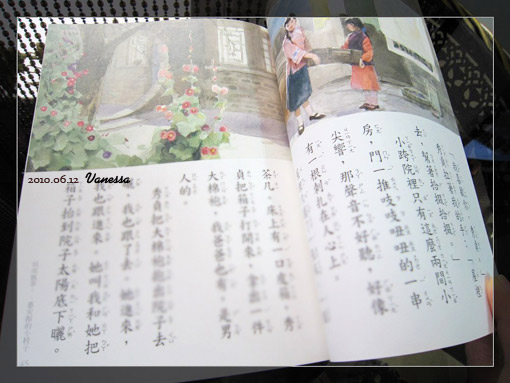 去，幫著拾掇拾掇。」
小跨院裡只有這麼兩間小
房，門一推吱吱扭扭的一串
尖響，那聲音不好聽，好像
有一根刺扎在人心上。
茶几，床上有一口皮箱，秀
貞把箱子打開來，拿出一件
大棉袍，我爸爸也有，是男
人的。
秀貞把大棉袍抱出院子去
我也跟了去。她進來，
我也跟進來。她叫我和她把
箱子抬到院子太陽底下曬。
2010.06.12 Vanessa